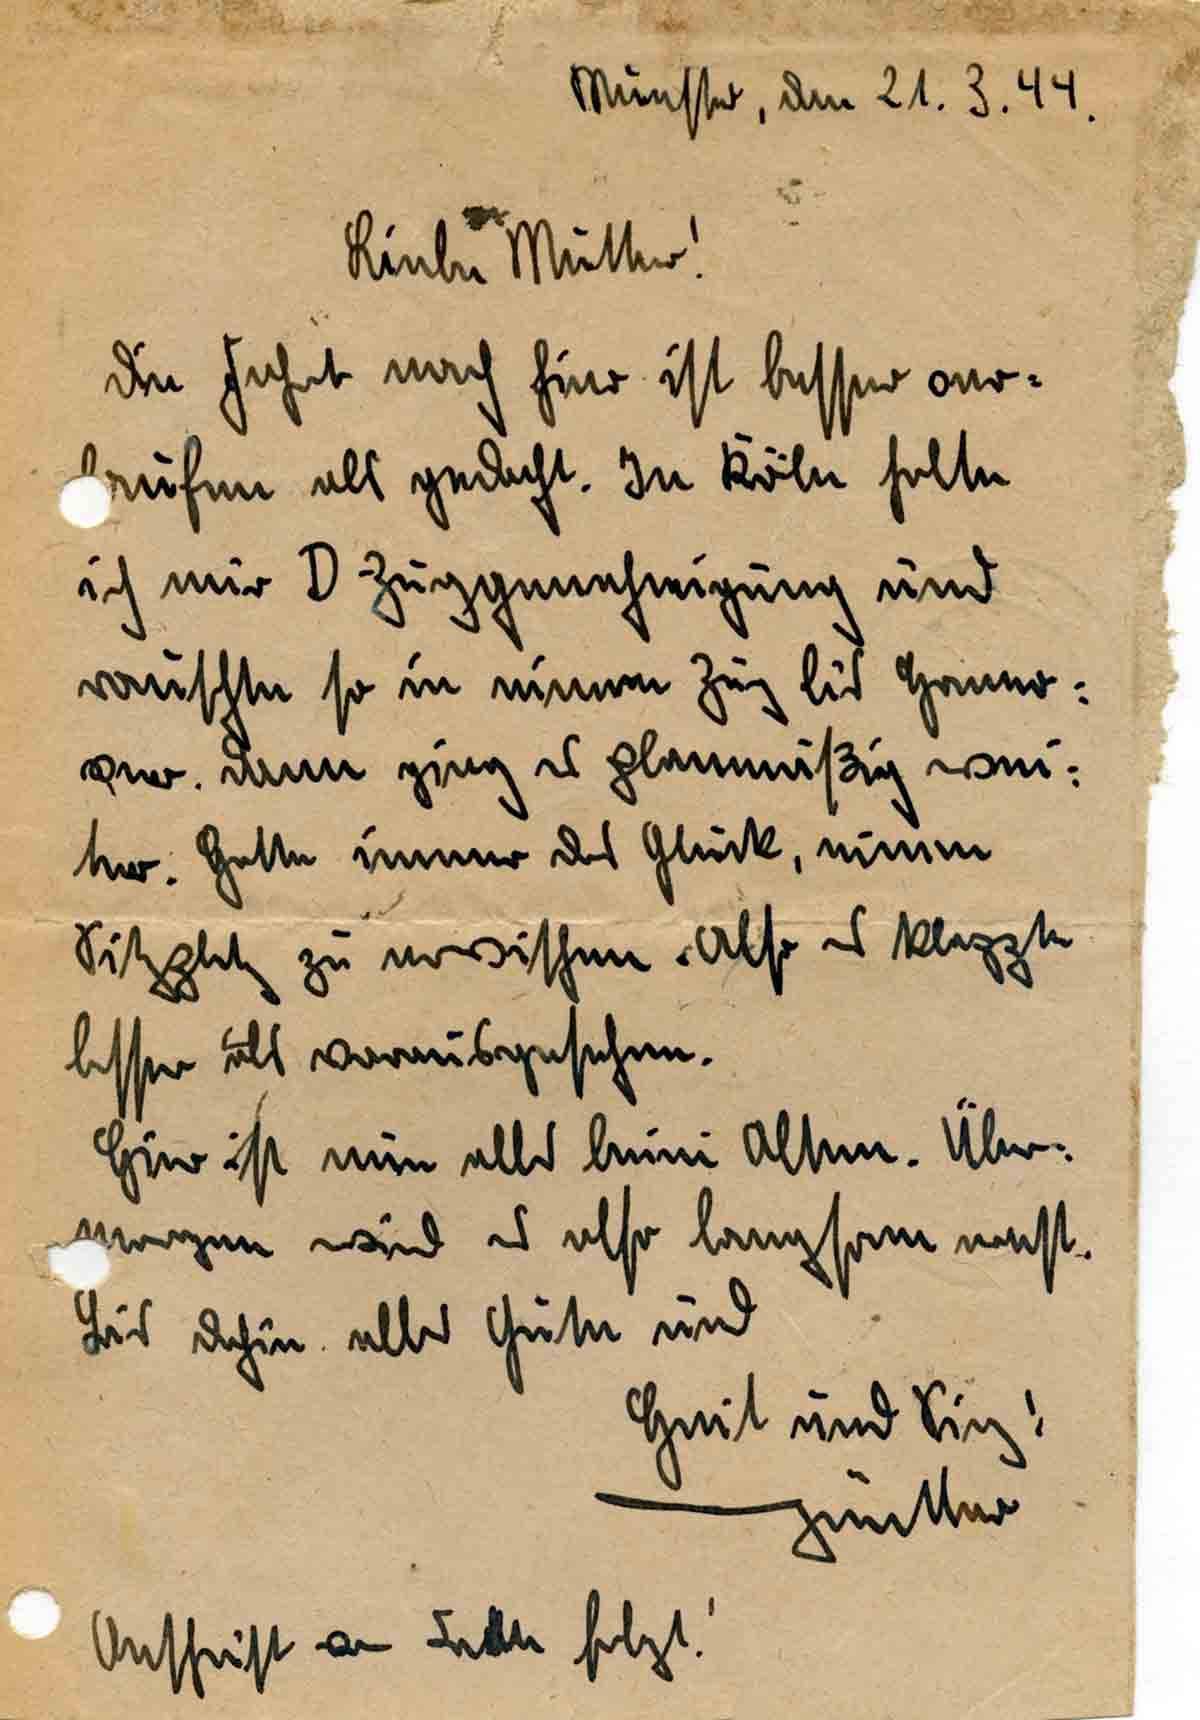 Münster, den 21.3.44.
Liebe Mutter!
Die Fahrt nach hier ist besser ver=
laufen als gedacht. In Köln holte
ich mir D-Zuggenehmigung und
rauschte so in einem Zug bis Hanno=
ver. Dann ging es planmäßig wei=
ter. Hatte immer das Glück, einen
Sitzplatz zu erwischen. Also es klappte
besser als vorausgesehen.
Hier ist nun alles beim Alten. Über=
morgen wird es also langsam ernst.
Bis dahin alles Gute und
Heil und Sieg!
Günther
Anschrift folgt!